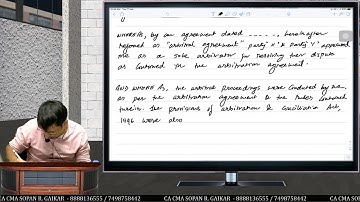 WHEREAS, by an agreement dated -----, hereinafter
referred as "arbitral agreement" party 'X' & party 'Y' appointed
me as a sole arbitrator for resolving their dispute
as contained in the arbitration agreement.
AND WHEREAS, the arbitral proceedings were conducted by me
as per the arbitration agreement & the rules contained
therein. The provisions of arbitration & Conciliation Act,
1996 were also
CA CMA SOPAN R. GAIKAR - 8888136555 / 7498758442
CA CMA SOPAN R. GAIKAR - 8888136555 / 7498758442